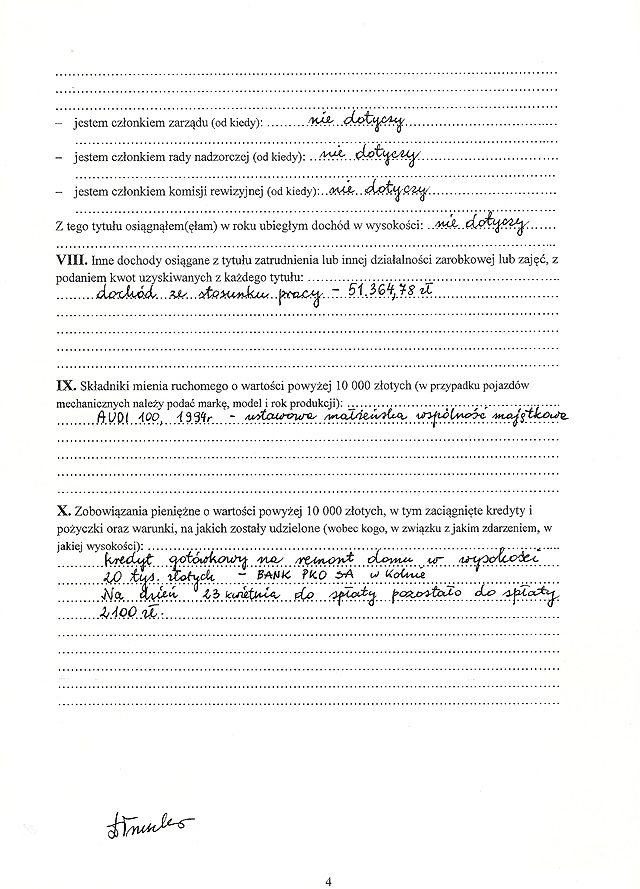 – jestem członkiem zarządu (od kiedy): nie dotyczy
– jestem członkiem rady nadzorczej (od kiedy): nie dotyczy
– jestem członkiem komisji rewizyjnej (od kiedy): nie dotyczy
Z tego tytułu osiągnąłem(ęłam) w roku ubiegłym dochód w wysokości: nie dotyczy
VIII. Inne dochody osiągane z tytułu zatrudnienia lub innej działalności zarobkowej lub zajęć, z
podaniem kwot uzyskiwanych z każdego tytułu:
dochód ze stosunku pracy – 51.364,78 zł
IX. Składniki mienia ruchomego o wartości powyżej 10 000 złotych (w przypadku pojazdów
mechanicznych należy podać markę, model i rok produkcji):
AUDI 100, 1994r – ustawowa małżeńska wspólność majątkowa
X. Zobowiązania pieniężne o wartości powyżej 10 000 złotych, w tym zaciągnięte kredyty i
pożyczki oraz warunki, na jakich zostały udzielone (wobec kogo, w związku z jakim zdarzeniem, w
jakiej wysokości):
kredyt gotówkowy na remont domu w wysokości
20 tys. złotych – BANK PKO SA w Kolnie
Na dzień 23 kwietnia do spłaty pozostało do spłaty
2100 zł.
4